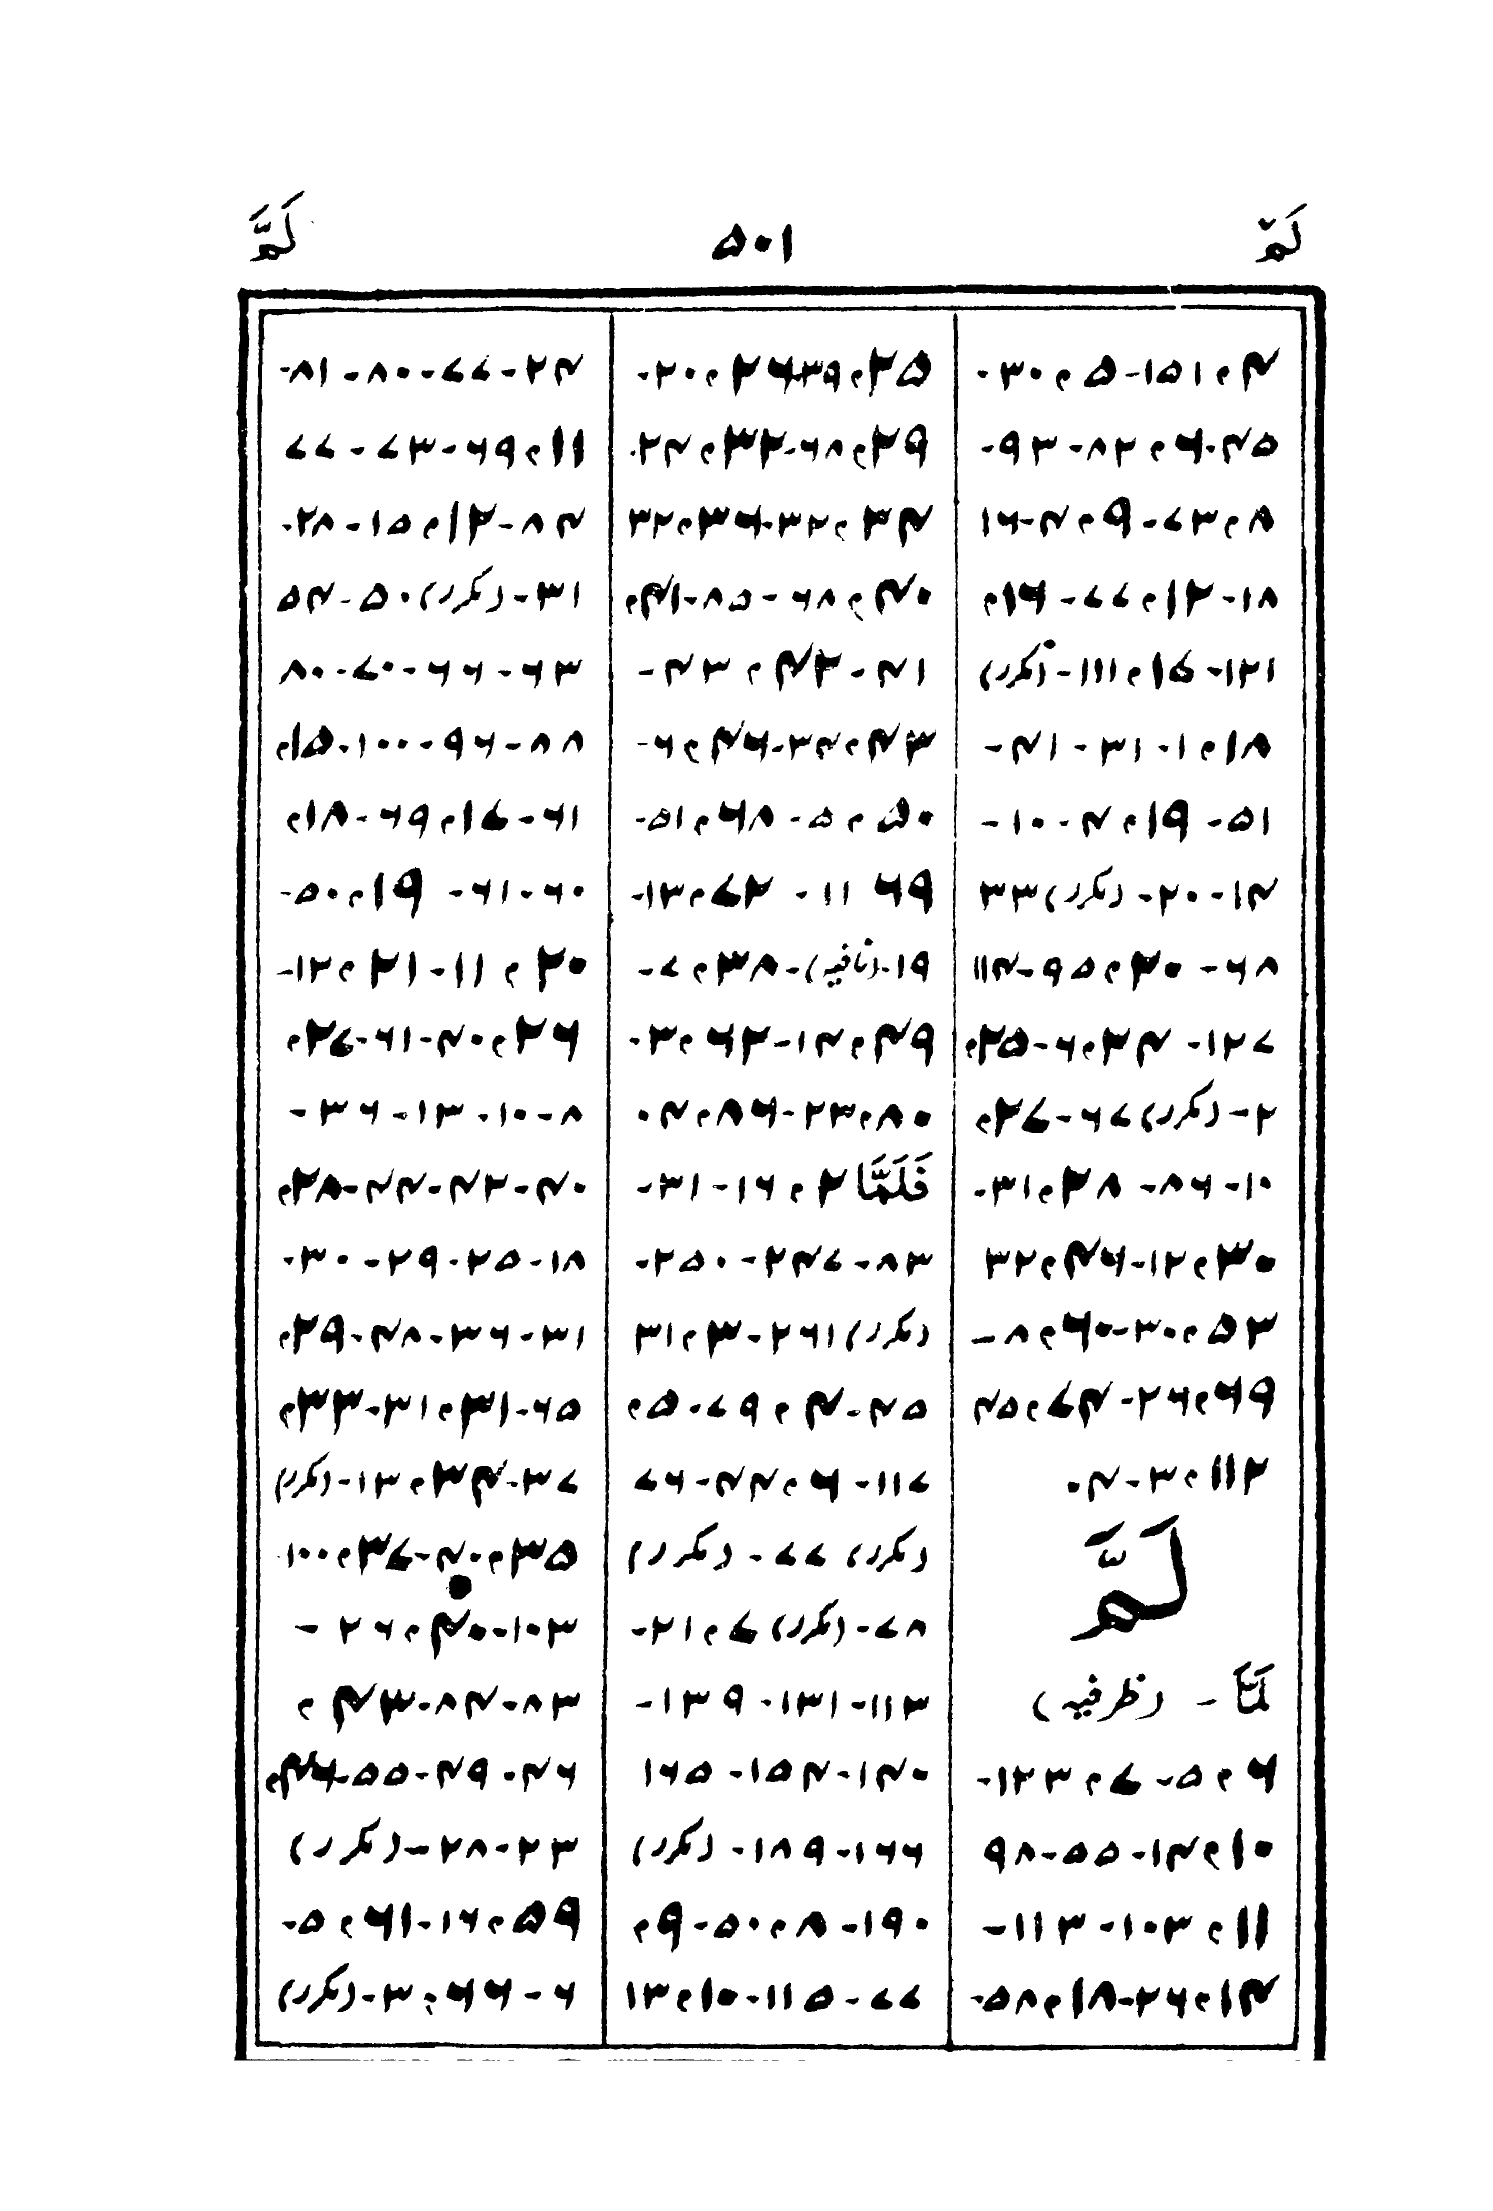 لَمّ ۵۰۱ لَمَّ
۴،۱۵۱-۵،۳۰-
۴۵-۶،۸۲-۹۳-
۸،۷۳-۹،۴-۱۶
۱۸-۱۲،۷۷-۱۶،
۱۲۱-۱۷،۱۱۱-(مکرر)
۱۸،۱-۳۱-۴۱-
۵۱-۱۹،۴-۱۰-
۱۴-۲۰-(مکرر)۳۳
۶۸-۲۰،۹۵-۱۱۴
۱۲۷-۲۴،۶-۲۵،
۲-(مکرر)۶۷-۲۷،
۱۰-۸۶-۲۸،۳۱-
۳۰،۱۲-۴۶،۳۲
۵۳،۳۰-۶۰،۸-
۶۹،۲۶-۷۴،۴۵
۱۱۲،۳-۴-
لَمَّ
لَمَّا - (ظرفیہ)
۶،۵-۷،۱۲۳-
۱۰،۱۴-۵۵-۹۸
۱۱،۱۰۳-۱۱۳-
۱۴،۲۶-۱۸،۵۸-
۲۵،۳۹-۲۶،۲۰-
۲۹،۶۸-۳۲،۲۴-
۳۴،۳۲-۳۶،۳۲
۴۰،۶۸-۸۵-۴۱،
۴۱-۴۲،۴۳-
۴۳،۳۴-۴۶،۶-
۵۰،۵-۶۸،۵۱-
۶۹ ۱۱-۷۲،۱۳-
۱۹-(نافیہ)-۳۸،۷-
۴۹،۱۴-۶۲،۳-
۸۰،۲۳-۸۶،۴-
فَلَمَّا ۲،۱۶-۳۱-
۸۳-۲۴۷-۲۵۰-
(مکرر)۲۶۱-۳،۳۱
۴۵-۴،۷۹-۵،
۱۱۷-۶،۴۴-۷۶
(مکرر) ۷۷-(مکرر)
۷۸-(مکرر)۷،۲۱-
۱۱۳-۱۳۱-۱۳۹-
۱۴۰-۱۵۴-۱۶۵
۱۶۶-۱۸۹-(مکرر)
۱۹۰-۸،۵۰-۹،
۷۷-۱۱۵-۱۰،۱۳
۲۴-۷۷-۸۰-۸۱-
۱۱،۶۹-۷۳-۷۷
۸۴-۱۲،۱۵-۲۸-
۳۱-(مکرر)۵۰-۵۴
۶۳-۶۶-۷۰-۸۰
۸۸-۹۶-۱۰۰-۱۵،
۶۱-۱۷،۶۹-۱۸،
۶۰-۶۱-۱۹،۵۰-
۲۰،۱۱-۲۱،۱۲-
۲۶،۴۰-۶۱-۲۷،
۸-۱۰-۱۳-۳۶-
۴۰-۴۲-۴۴-۲۸،
۱۸-۲۵-۲۹-۳۰-
۳۱-۳۶-۴۸-۲۹،
۶۵-۳۱،۳۱-۳۳،
۳۷-۳۴،۱۳-(مکرر)
۳۵،۴۰-۳۷،۱۰۰
۱۰۳-۴۰،۲۶-
۸۳-۸۴-۴۳،
۴۶-۴۹-۵۵-۴۶،
۲۳-۲۸-(مکرر)
۵۹،۱۶-۶۱،۵-
۶-۶۶،۳-(مکرر)